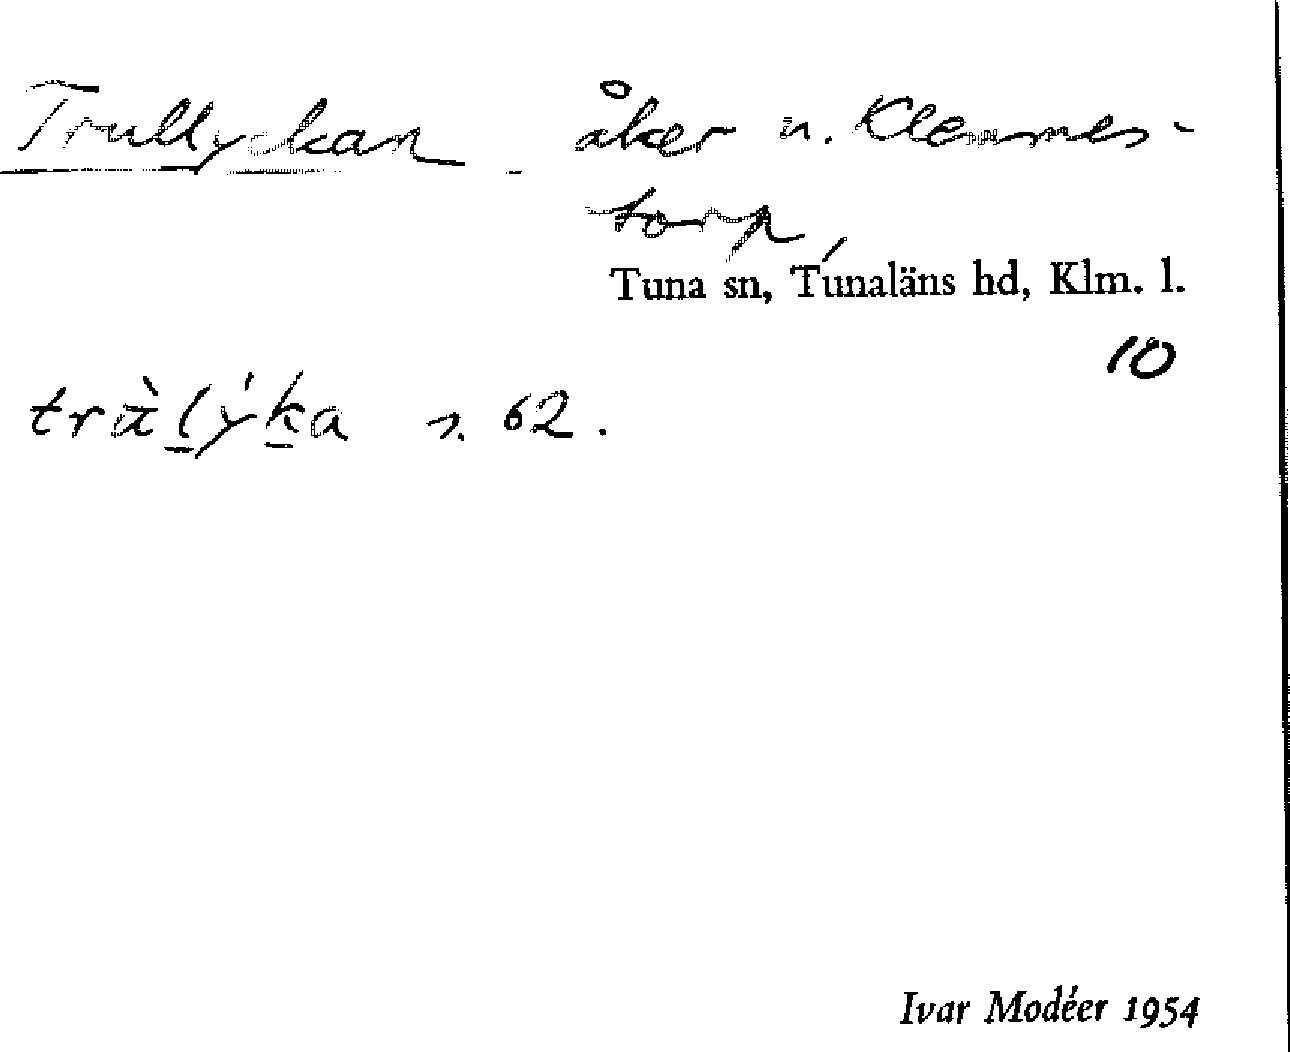 Trullyckan åker n. Klemmes-
torp,
Tuna sn, Tunaläns hd, Klm. l.
10
62.
Ivar Modéer 1954